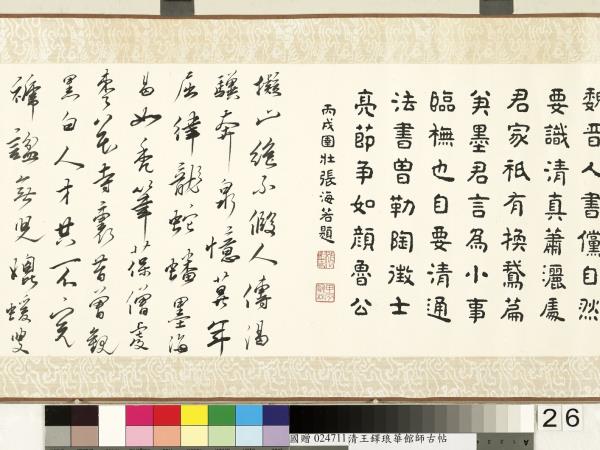 魏晉人書儻自然
要識清真蕭灑處
君家祇有換鵞篇
矣墨君言為小事
臨橅也自要清通
法書曾勒陶徵士
亮節爭如顏魯公
丙戌團壯張海若題
擬山絕不假人傳渴
驥奔泉憶昔年
屈律龍蛇蟠墨海
曷如禿筆葆僧虔
棗花寺裏昔曾觀
黑白人才共一
褲謚
26
國贈 024711 清王鐸琅華館師古帖